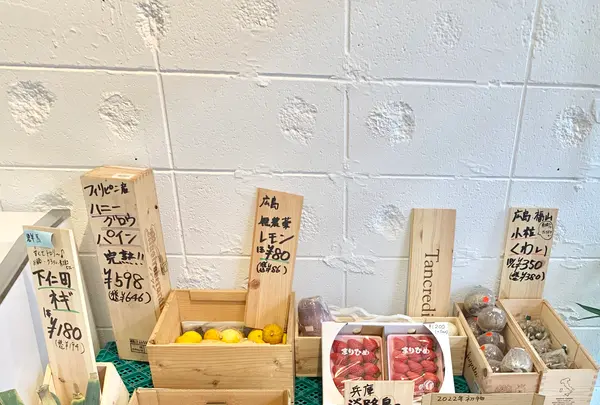 下仁町
ネギ
¥180
フィリピン産
ハニー
グロウ
パイン
完熟!!
¥598
(税¥646)
広島
レモン
は¥80
(税¥86)
Tancredi
広島 福山
小粒
くわい
¥350
(税¥380)
まりひめ
まりひめ
兵庫
淡路島
2022年初物